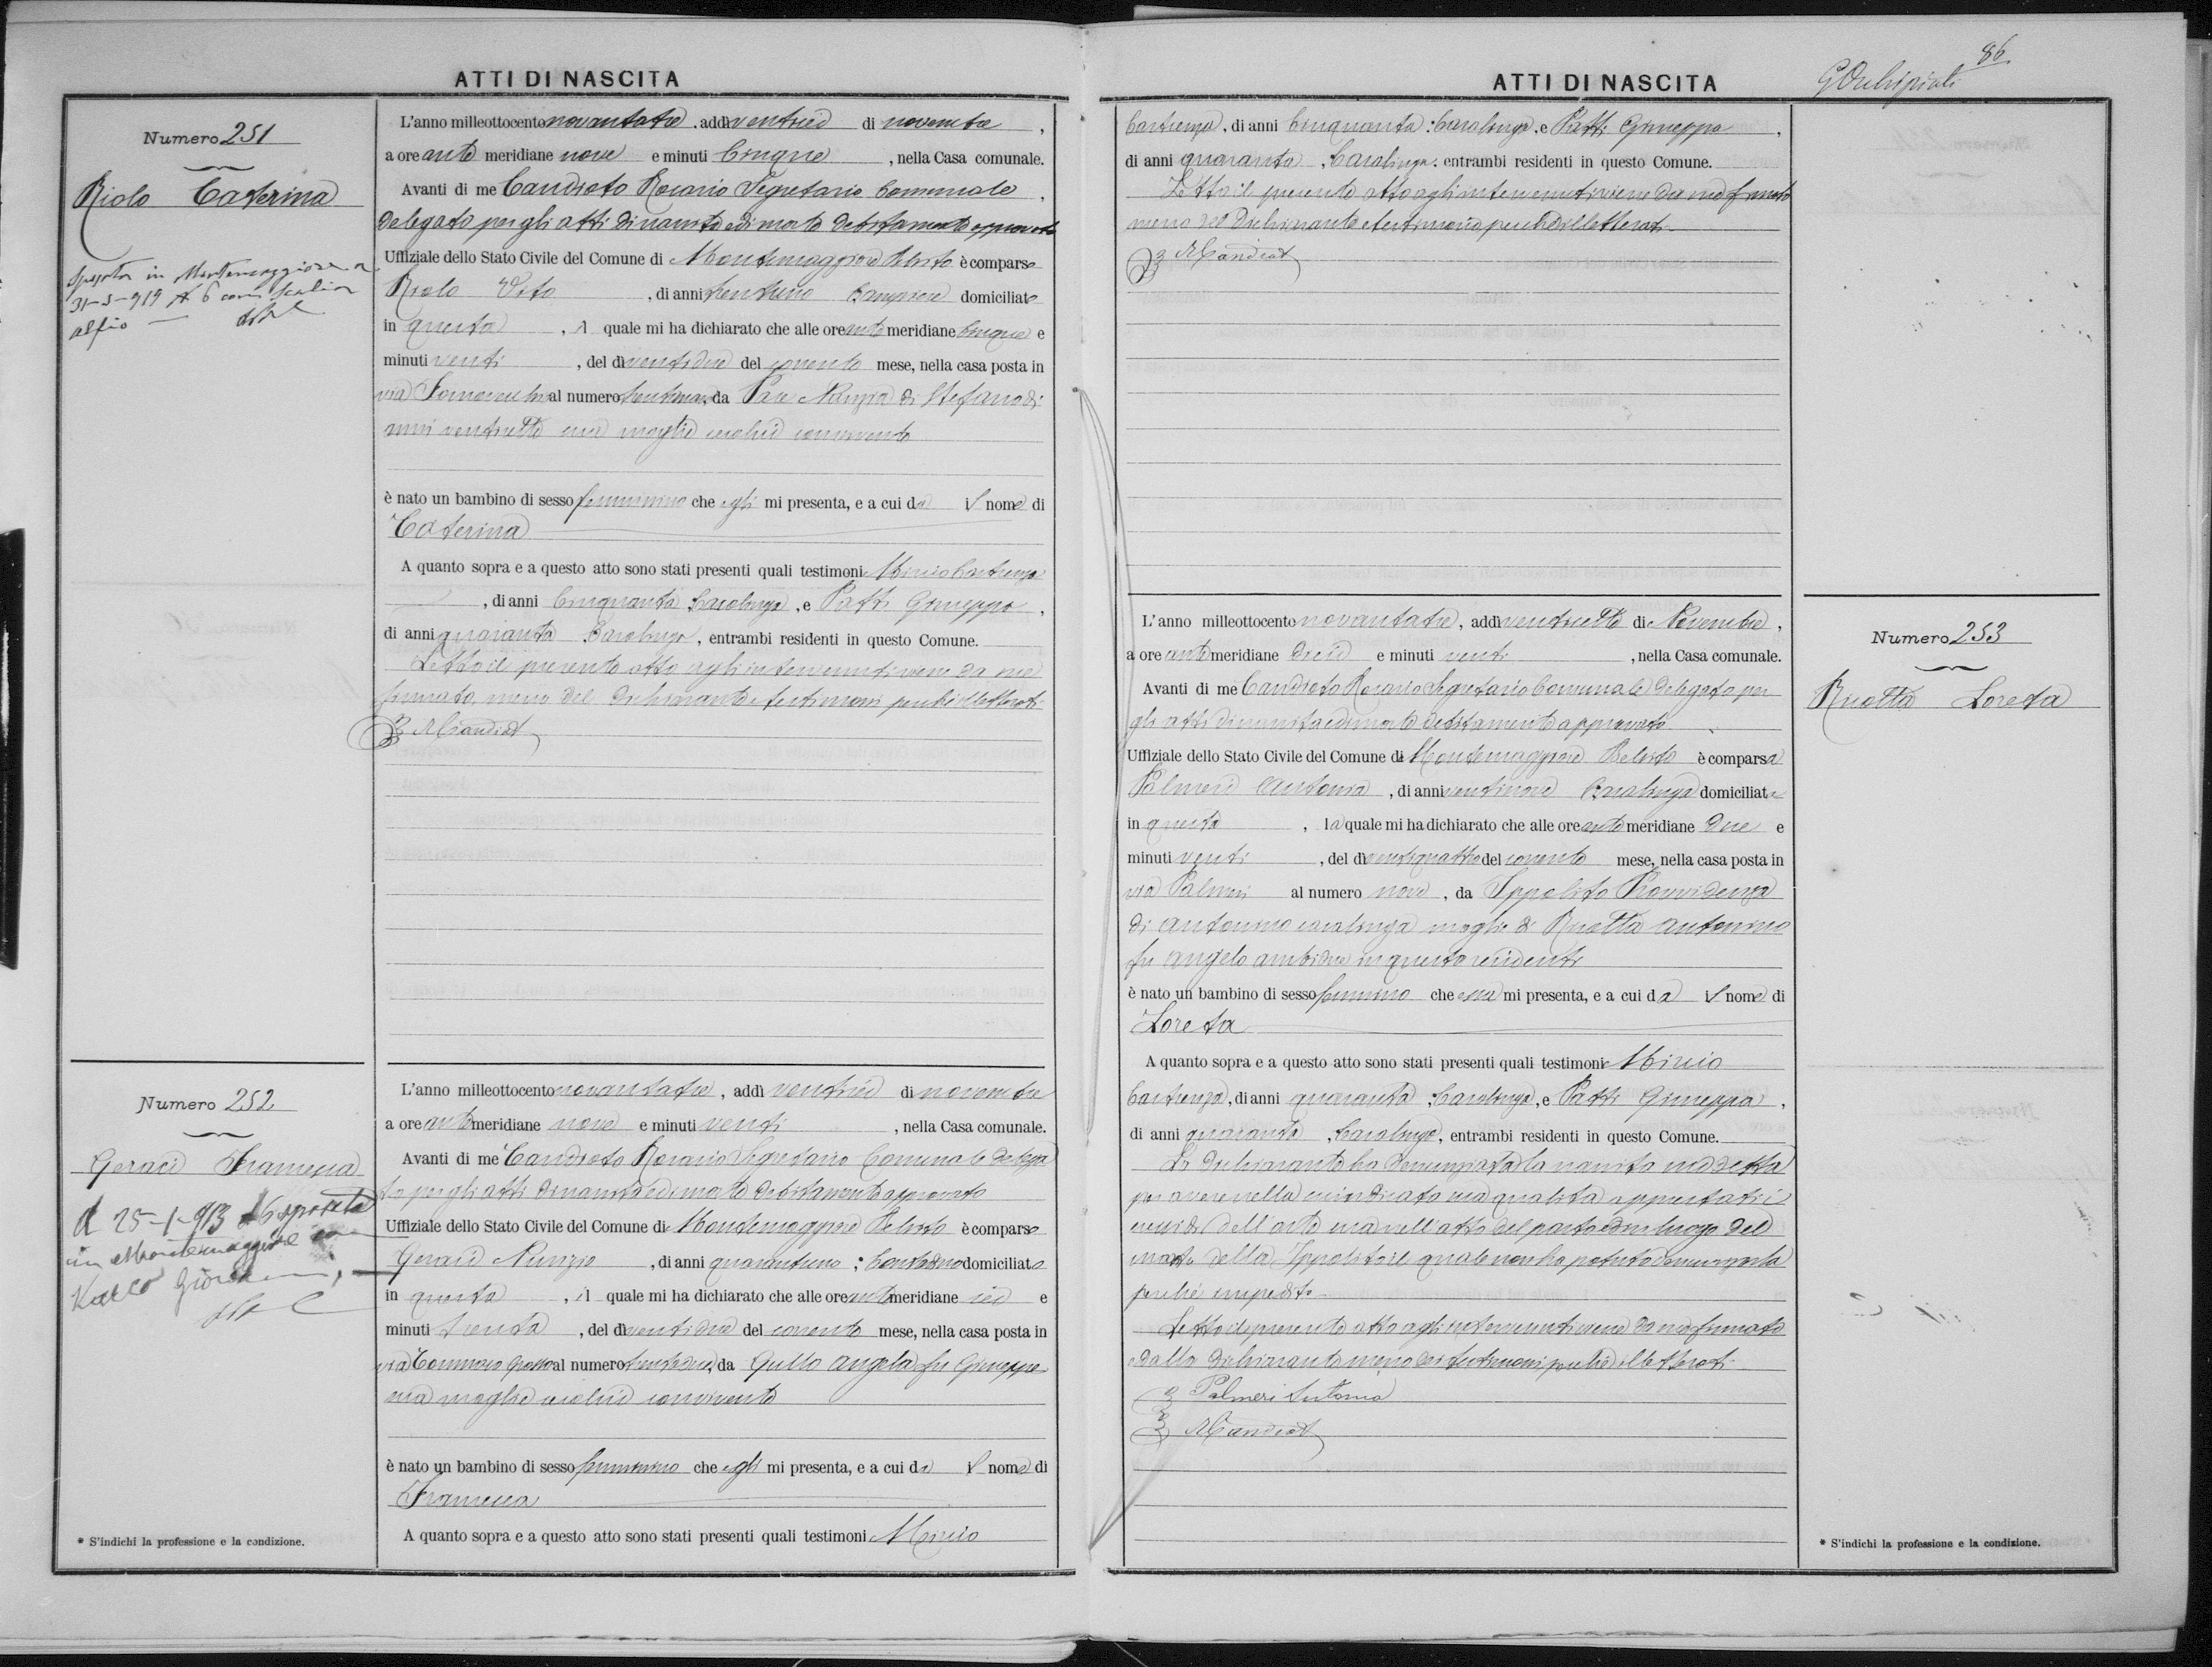 ATTI DI NASCITA
Numero 251
Riolo Caterina
Sposata in Montemaggiore a
31-3-919 N 6 con Scalia
alfio
L'anno milleottocento novantatre, addì ventitrè di novembre,
a ore ante meridiane nove e minuti Cinque, nella Casa comunale.
Avanti di me Candioto Rosario Segretario Comunale,
delegato per gli atti di nascita e di morte debitamente approvato
Uffiziale dello Stato Civile del Comune di Montemaggiore Belsito è comparso
Riolo Vito, di anni trentuno Campiere domiciliato
in questa, il quale mi ha dichiarato che alle ore ante meridiane cinque e
minuti venti, del dì ventidue del corrente mese, nella casa posta in
via al numero, da Pace Nunzia di Stefano di
anni ventisette sua moglie seco lui convivente
è nato un bambino di sesso femminino che egli mi presenta, e a cui dà il nome di
Caterina
A quanto sopra e a questo atto sono stati presenti quali testimoni Mincio Castrenza
, di anni Cinquanta Casalinga, e Patti Giuseppa,
di anni quaranta Casalinga, entrambi residenti in questo Comune.
Letto il presente atto agli intervenuti viene da me
firmato, meno del dichiarante e testimoni perchè illetterati
R Candioto
Numero 252
Geraci Francesca
A 25-1-913 N 6 sposata
in Montemaggiore con
L'anno milleottocento novantatre, addì ventitrè di novembre
a ore ante meridiane nove e minuti venti, nella Casa comunale.
Avanti di me Candioto Rosario Segretario Comunale delega
to per gli atti di nascita e di morte debitamente approvato
Uffiziale dello Stato Civile del Comune di Montemaggiore Belsito è comparso
Geraci Nunzio, di anni quarantuno; Contadino domiciliato
in questa, il quale mi ha dichiarato che alle ore ante meridiane sei e
minuti trenta, del dì ventidue del corrente mese, nella casa posta in
via al numero trentadue, da Gullo Angela fu Giuseppe
sua moglie seco lui convivente
è nato un bambino di sesso femminino che egli mi presenta, e a cui dà il nome di
Francesca
A quanto sopra e a questo atto sono stati presenti quali testimoni Mincio
* S'indichi la professione e la condizione.
ATTI DI NASCITA
86
Castrenza, di anni Cinquanta: Casalinga, e Patti Giuseppa,
di anni quaranta, Casalinga, entrambi residenti in questo Comune.
Letto il presente atto agli intervenuti viene da me firmato
meno del dichiarante e testimoni perchè illetterati
R Candioto
Numero 253
Ruotta Loreta
L'anno milleottocento novantatre, addì ventisette di Novembre,
a ore ante meridiane dieci e minuti venti, nella Casa comunale.
Avanti di me Candioto Rosario Segretario Comunale delegato per
gli atti di nascita e di morte debitamente approvato
Uffiziale dello Stato Civile del Comune di Montemaggiore Belsito è comparsa
Palmeri Antonia, di anni ventinove Casalinga domiciliata
in questa, la quale mi ha dichiarato che alle ore ante meridiane due e
minuti venti, del dì ventiquattro del corrente mese, nella casa posta in
via Palmeri al numero nove, da Ippolito Provvidenza
di Antonino casalinga moglie di Ruotta Antonino
fu Angelo ambidue in questa residenti
è nato un bambino di sesso femminino che essa mi presenta, e a cui dà il nome di
Loreta
A quanto sopra e a questo atto sono stati presenti quali testimoni Mincio
Castrenza, di anni quaranta, Casalinga, e Patti Giuseppa,
di anni quaranta, Casalinga, entrambi residenti in questo Comune.
La dichiarante ha denunziata la nascita suddetta
per avere nella qualità
dell'arte sua nell'atto del parto ed in luogo del
marito della Ippolito il quale non ha potuto denunziarla
perchè impedito
Letto il presente atto agli intervenuti viene da me firmato
e dalla dichiarante meno dei testimoni perchè illetterati
Palmeri Antonia
R Candioto
* S'indichi la professione e la condizione.